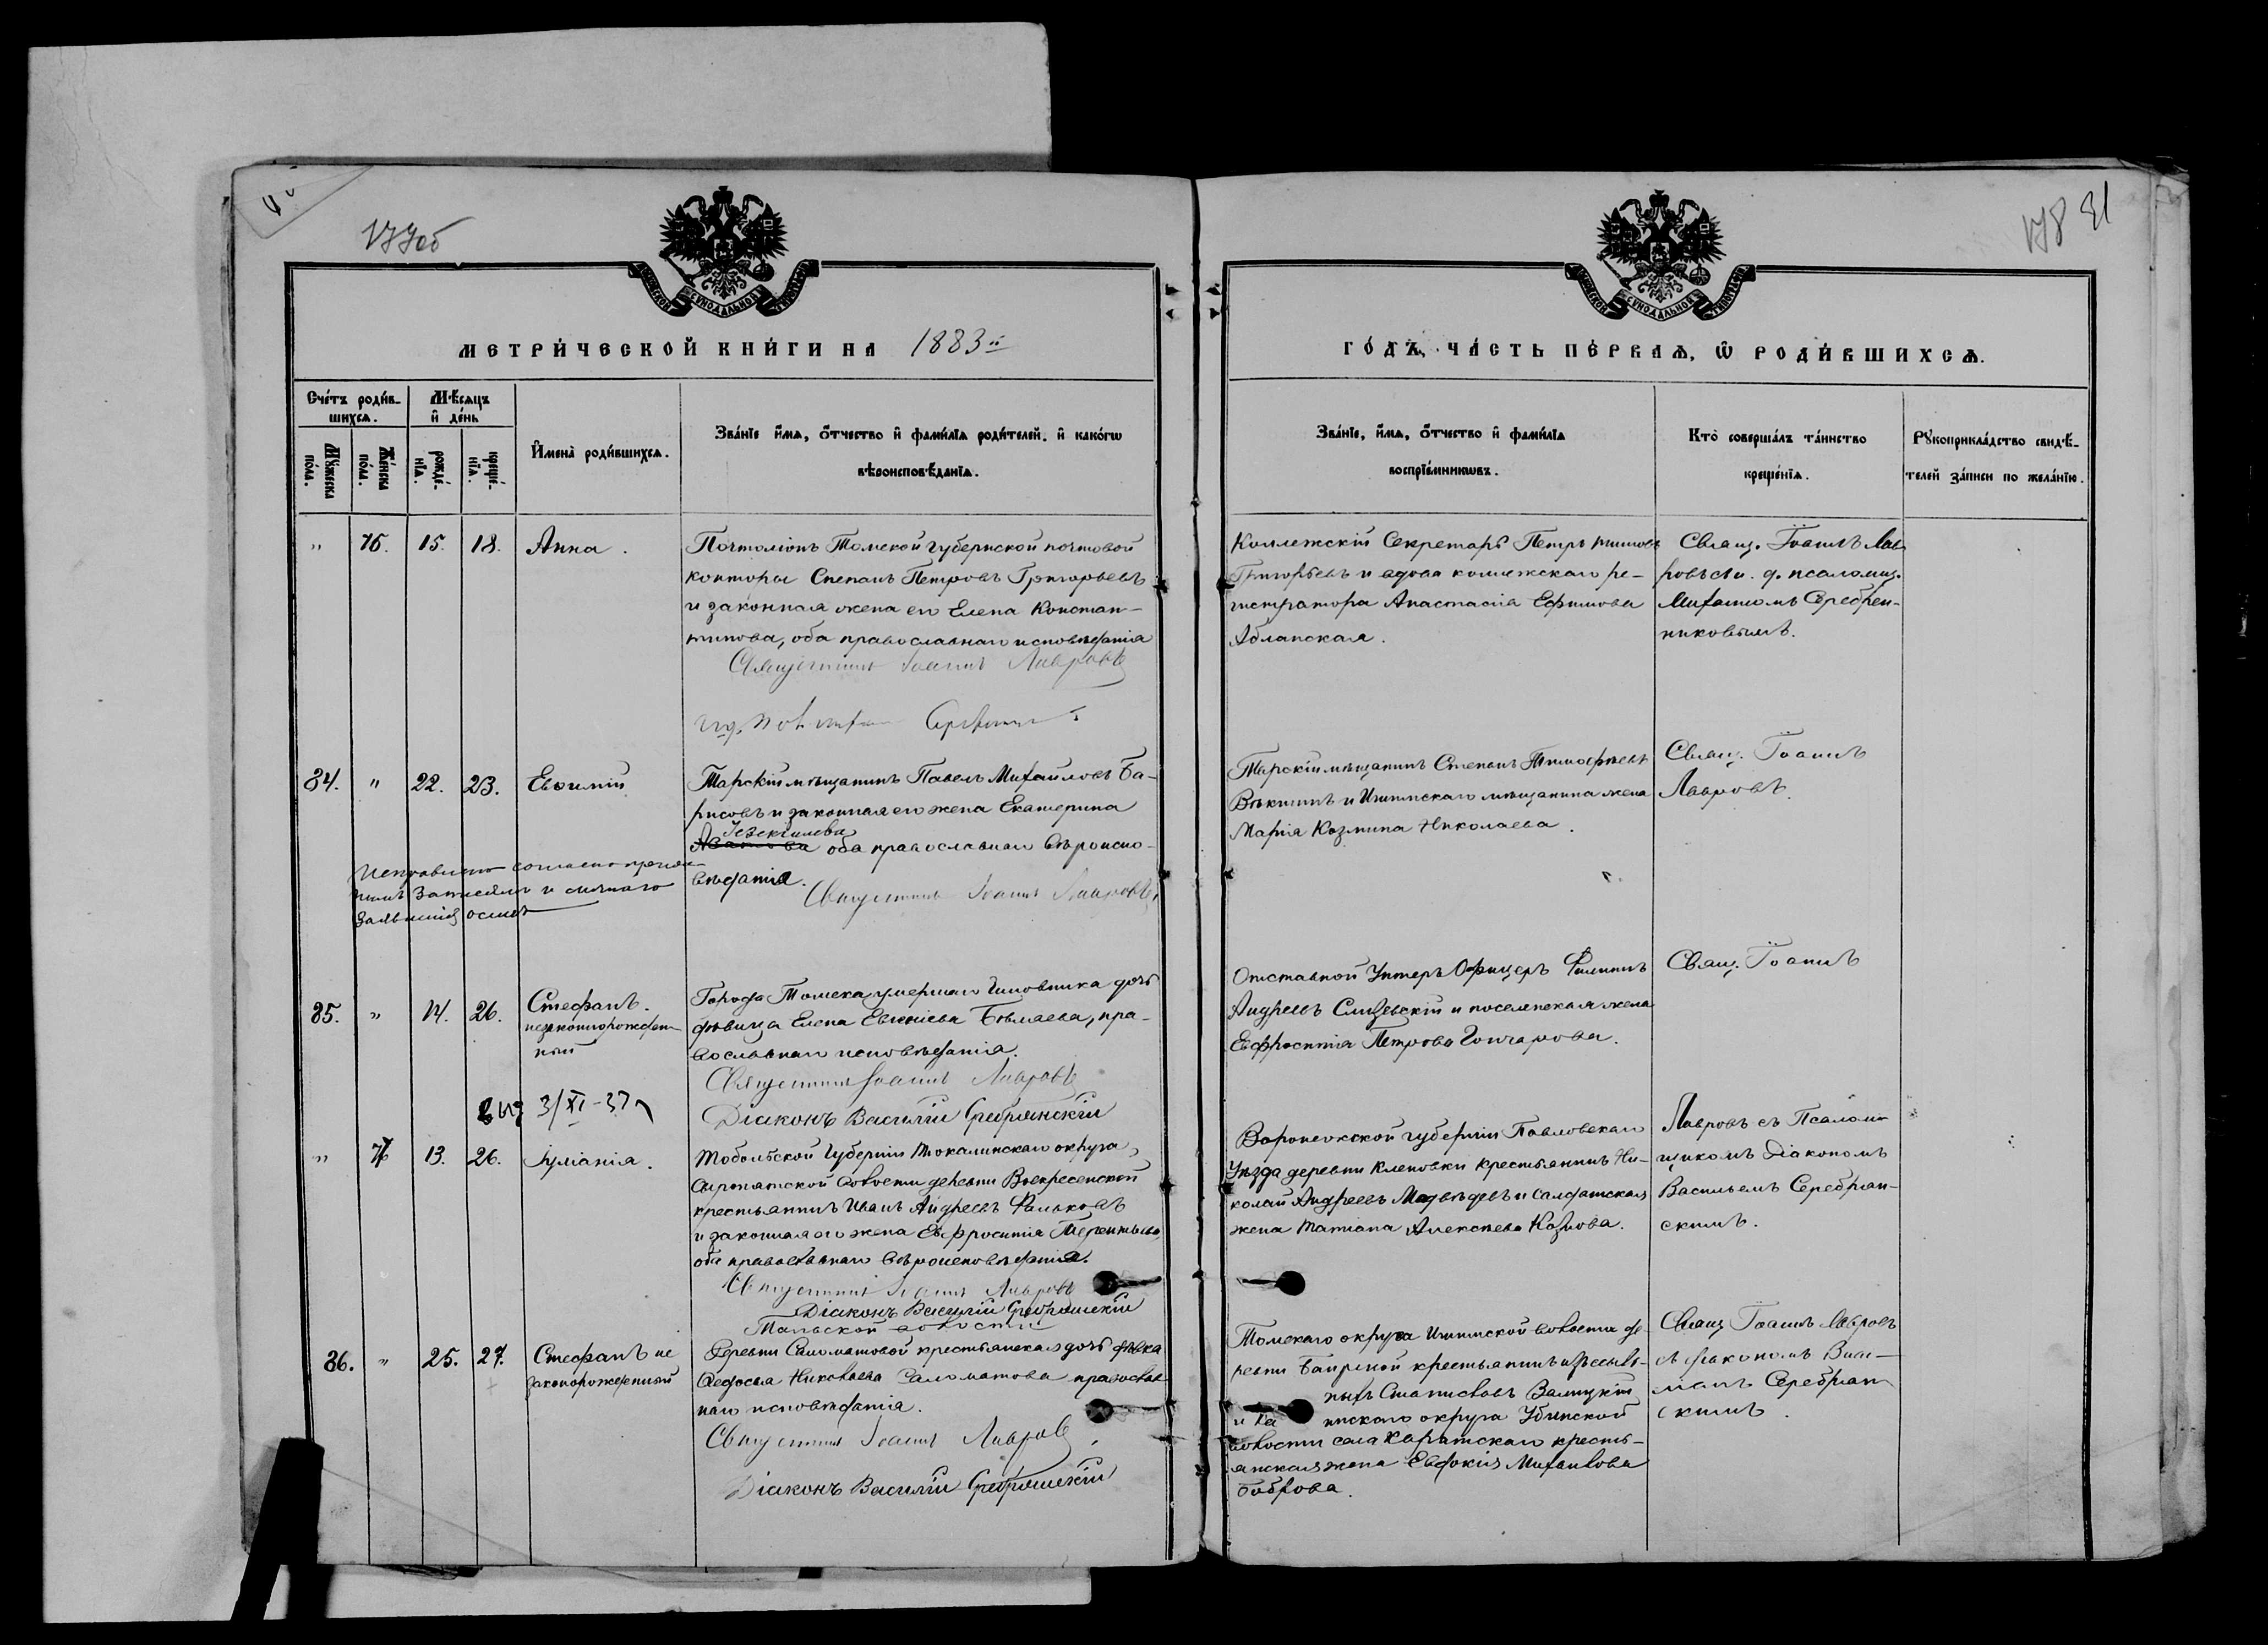 177об
178 81
МЕТРИЧЕСКОЙ КНИГИ НА 1883й
ГОДЪ, ЧАСТЬ ПЕРВАЯ, Ѡ РОДИВШИХСЯ.
Счетъ родив-
шихся.
Мѣсяцъ
и день
Мужеска пола.
Женска пола.
рожде-
нія.
креще-
нія.
Имена родившихся.
Званіе имя, отчество и фамилія родителей. и какогѡ
вѣроисповѣданія.
Званіе, имя, отчество и фамилія
воспріемникѡвъ.
Кто совершалъ таинство
крещенія.
Рукоприкладство свидѣ-
телей записи по желанію.
" 75. 15. 18. Анна.
Почтоліонъ Томской губернской почтовой
конторы Степанъ Петровъ Григорьевъ
и законная жена его Елена Констан-
тинова, оба православнаго исповѣданія
Священникъ Іоаннъ Лавровъ
Коллежскій Секретарь Петръ
Григорьевъ и вдова коллежскаго ре-
гистратора Анастасія Ефимова
Абланская.
Свящ. Іоаннъ Лав-
ровъ съ и. д. псаломщ.
Михаиломъ Серебрен-
никовымъ.
84. " 22. 23. Евѳимій
Тарскій мѣщанинъ Павелъ Михайловъ Ба-
рисовъ и законная его жена Екатерина
Іезекіилева
оба православнаго вѣроиспо-
вѣданія.
Священникъ Іоаннъ Лавровъ
Исправлено согласно
Тарскій мѣщанинъ Степанъ Тимоѳеевъ
и Ишимскаго мѣщанина жена
Марія Козмина Николаева.
Свящ. Іоаннъ
Лавровъ.
85. " 14. 26. Стефанъ.
незаконнорожден-
ный
Города Томска умершаго Чиновника дочь
дѣвица Елена Евгеніева Бѣляева, пра-
вославнаго исповѣданія.
Священникъ Іоаннъ Лавровъ
Діаконъ Василій Серебрянскій
3/XI-37
Отставной Унтеръ Офицеръ Филиппъ
Андреевъ и поселенская жена
Евфросинія Петрова Гончарова.
Свящ. Іоаннъ
Лавровъ съ Псалом-
щикомъ Діакономъ
Васильемъ Серебрян-
скимъ.
" 76 13. 26. Іуліанія.
Тобольской Губерніи Тюкалинскаго округа,
Сыропятской волости деревни Воскресенской
крестьянинъ Иванъ Андреевъ Фальковъ
и законная его жена Евфросинія Терентьева,
оба православнаго вѣроисповѣданія.
Священникъ Іоаннъ Лавровъ
Діаконъ Василій Серебрянскій
Воронежской губерніи Павловскаго
Уѣзда деревни Кленовки крестьянинъ Ни-
колай Андреевъ Медвѣдевъ и салдатская
жена Татіана Алексѣева Козлова.
86. " 25. 27. Стефанъ не
законорожденный
Тальской волости
Деревни Саломатовой крестьянская дочь дѣвка
Ѳедосья Николаева Саломатова православ-
наго исповѣданія.
Священникъ Іоаннъ Лавровъ
Діаконъ Василій Серебрянскій
Томскаго округа Ишимской волости де-
ревни крестьянинъ изъ ссыль-
ныхъ Станиславъ Валицкій
и Ка инскаго округа Убинской
волости села Каратскаго кресть-
янская жена Евдокія Михайлова
Боброва.
Свящ Іоаннъ Лавровъ
съ діакономъ Васи-
Серебрян-
скимъ.